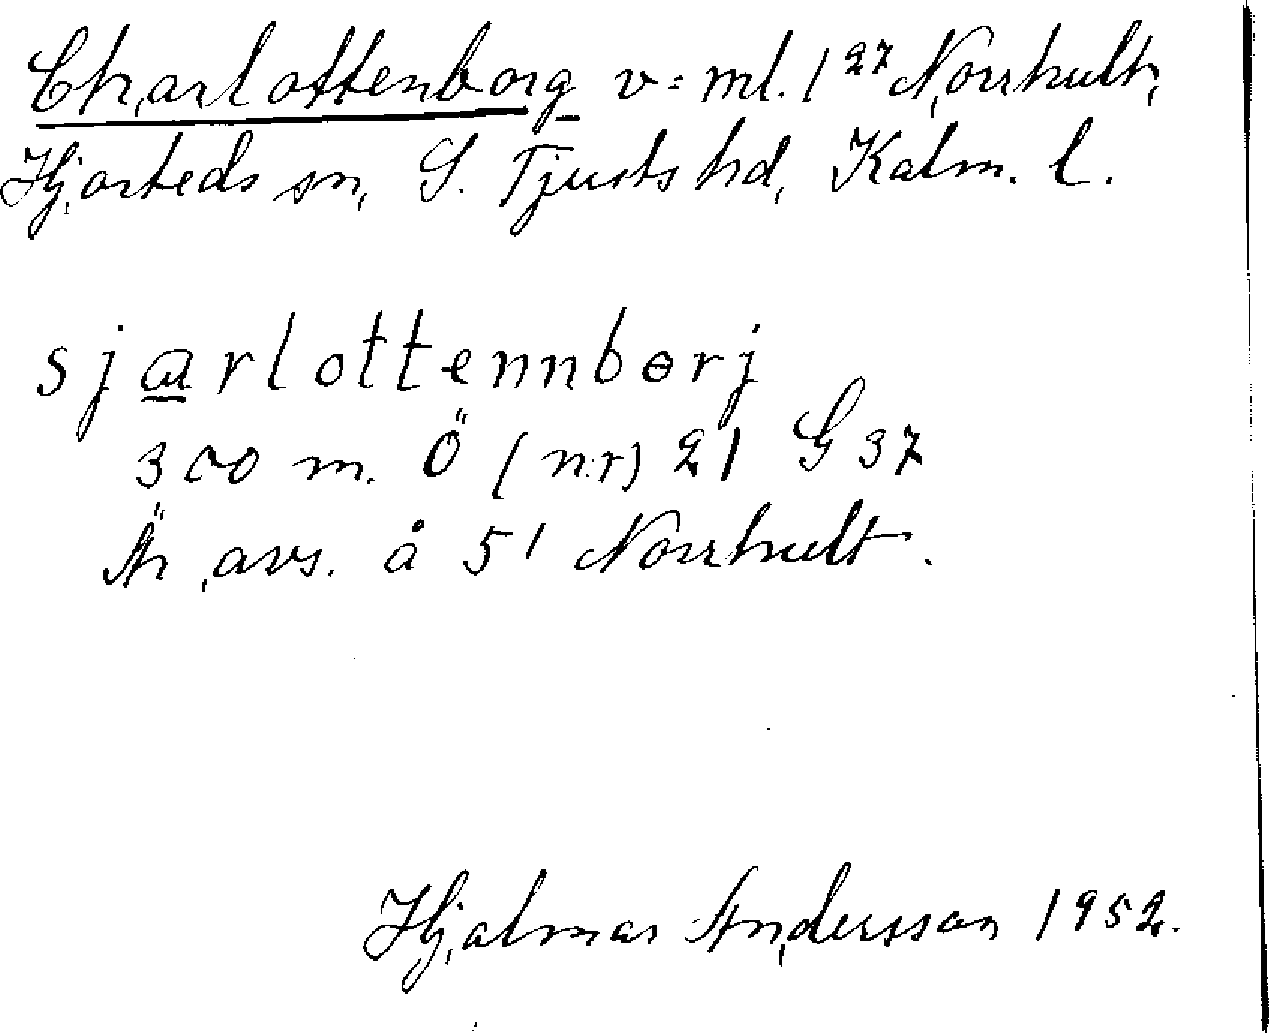 Charlottenborg v=ml. 1²⁷ Norrhult,
Hjorteds sn, S. Tjusts hd, Kalm. l.
sjarlottennbɵrj
300 m. Ö (nr) 21 G 37
Är avs. å 51 Norrhult.
Hjalmar Andersson 1952.